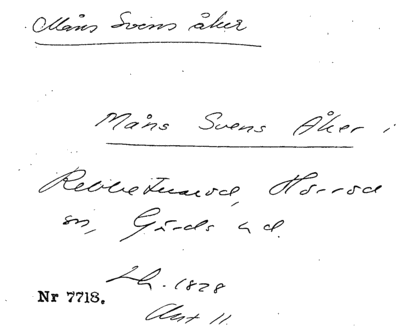 Måns Svens åker
Måns Svens Åker i
Rebbetuaröd, Hörröd
sn, Gärds hd.
Lh. 1828
Akt 11
Nr 7718.